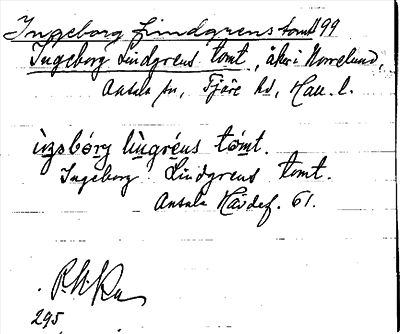 Ingeborg Lindgrens tomt 99
Ingeborg Lindgrens tomt, åker i Norrelund,
Onsala sn, Fjäre hd, Hall. l.
ìŋəbòrg lìŋgréns tòmt.
Ingeborg Lindgrens tomt.
Onsala Hävdef. 61.
295